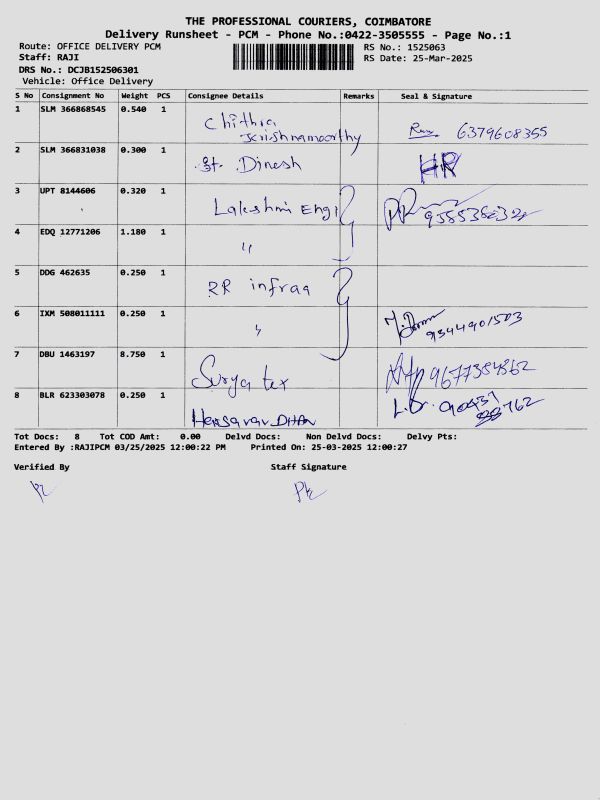 THE PROFESSIONAL COURIERS, COIMBATORE
Delivery Runsheet - PCM - Phone No.:0422-3505555 - Page No.:1
Route: OFFICE DELIVERY PCM
RS No.: 1525063
Staff: RAJI
RS Date: 25-Mar-2025
DRS No.: DCJB152506301
Vehicle: Office Delivery
S No Consignment No Weight PCS Consignee Details Remarks Seal & Signature
1 SLM 366868545 0.540 1 Chithra
Krishnamoorthy 6379608355
2 SLM 366831038 0.300 1 St. Dinesh HR
3 UPT 8144606 0.320 1 Lakshmi Engi
4 EDQ 12771206 1.180 1 "
5 DDG 462635 0.250 1 RR infraa
6 IXM 508011111 0.250 1 " 9344901503
7 DBU 1463197 8.750 1 Surya tex 9677354862
8 BLR 623303078 0.250 1
Tot Docs: 8 Tot COD Amt: 0.00 Delvd Docs: Non Delvd Docs: Delvy Pts:
Entered By :RAJIPCM 03/25/2025 12:00:22 PM Printed On: 25-03-2025 12:00:27
Verified By Staff Signature